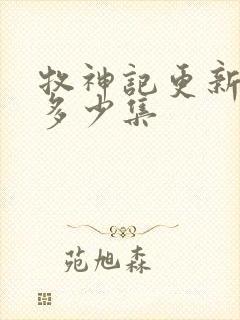 牧神記更新
多少集
苑旭森